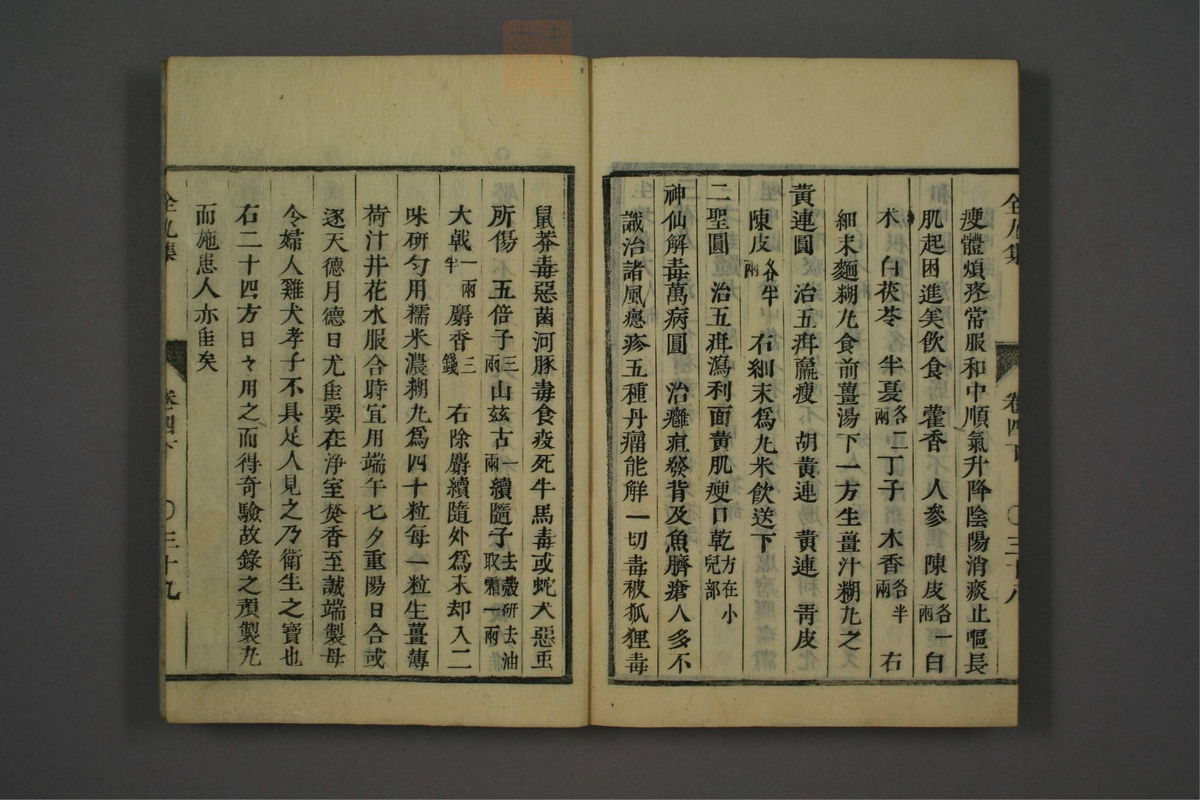 瘦體煩疼常服和中順氣升降陰陽消痰止嘔長
肌起困進美飲食 藿香 人參 陳皮各一兩 白
朮 白茯苓 半夏各二兩 丁子 木香各半兩 右
細末麵糊丸食前薑湯下一方生薑汁糊丸之
黃連圓 治五疳羸瘦 胡黃連 黃連 靑皮
陳皮各半兩 右細末爲丸米飮送下
二聖圓 治五疳瀉利面黃肌瘦口乾方在小兒部
神仙解毒萬病圓 治癰疽發背及魚臍瘡人多不
識治諸風癮疹五種丹瘤能解一切毒被狐狸毒
全九集 卷四下 〇三十八
鼠莽毒惡菌河豚毒食疫死牛馬毒或蛇犬惡虫
所傷 五倍子三兩 山玆古一兩 續隨子去殼硏去油取霜一兩
大戟一兩半 麝香三錢 右除麝續隨外爲末却入二
味研勻用糯米濃糊丸爲四十粒每一粒生薑薄
荷汁井花水服合時宜用端午七夕重陽日合或
逐天德月德日尤佳要在淨室焚香至誠端製毋
令婦人雞犬孝子不具足人見之乃衛生之寶也
右二十四方日々用之而得奇驗故錄之預製丸
而施患人亦佳矣
全九集 卷四下 〇三十九